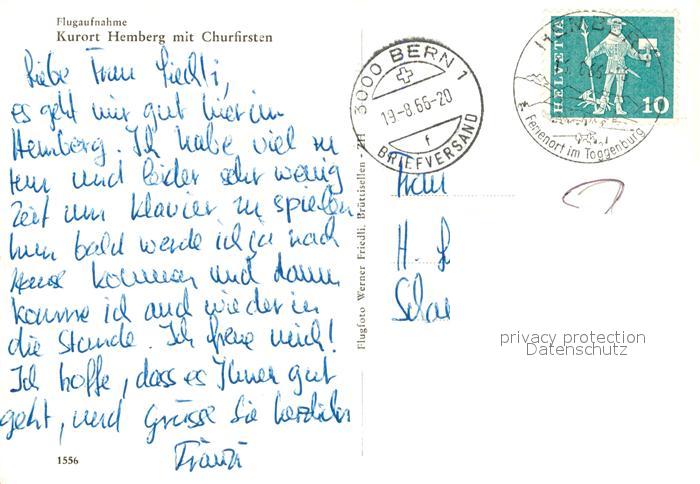 Flugaufnahme
Kurort Hemberg mit Churfirsten
Liebe Frau Liechti,
es geht mir gut hier im
Hemberg. Ich habe viel zu
tun und leider sehr wenig
Zeit um Klavier zu spielen
Nun bald werde ich ja nach
Hause kommen und dann
komme ich auch wieder in
die Stunde. Ich freue mich!
Ich hoffe, dass es Ihnen gut
geht, und Grüsse Sie herzlich
Franzi
1556
Flugfoto Werner Friedli, Brüttisellen - ZH
3000 BERN 1
19-8.66-20
f
BRIEFVERSAND
HELVETIA
10
HEMBERG
Ferienort im Toggenburg
Frau
H. L
privacy protection
Datenschutz